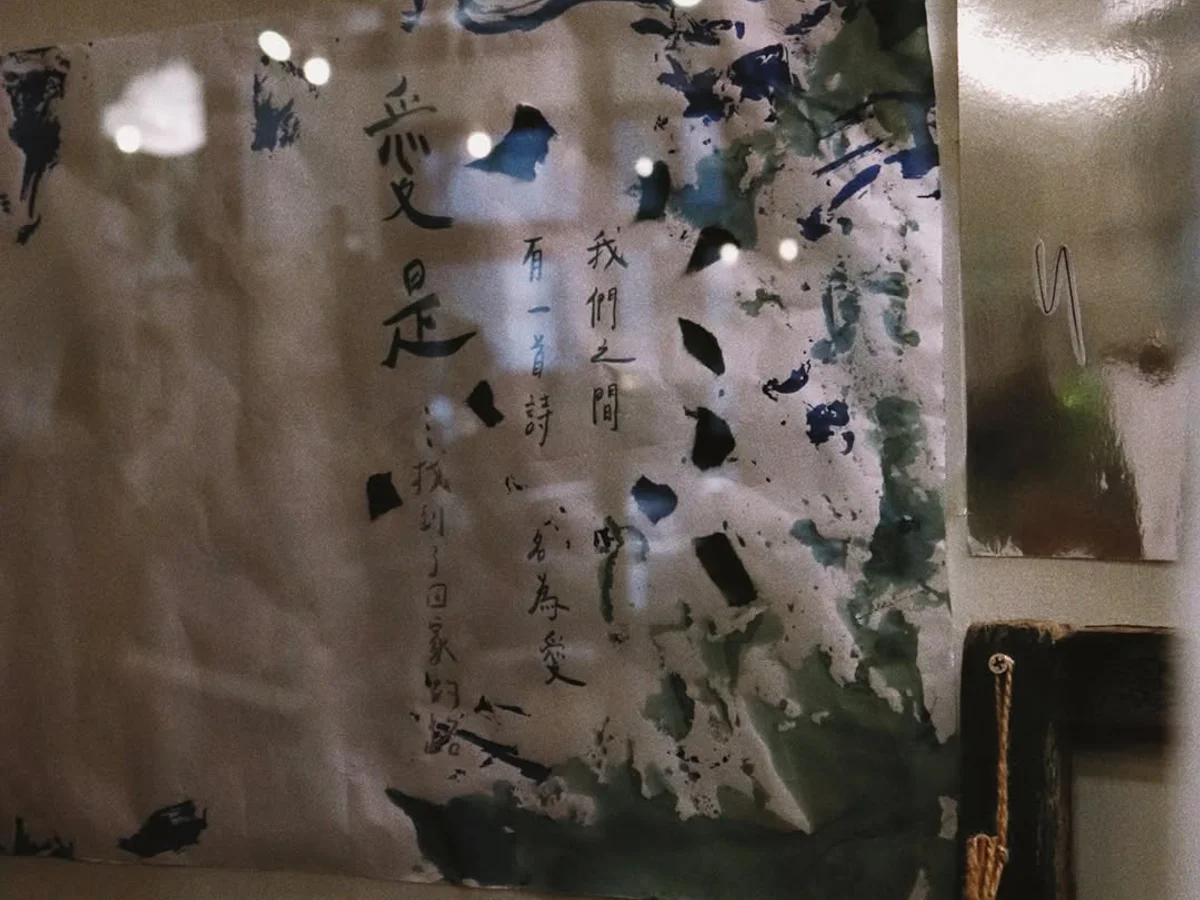 我們之間
有一首詩
名為愛
愛是
⋯找到了回家的路